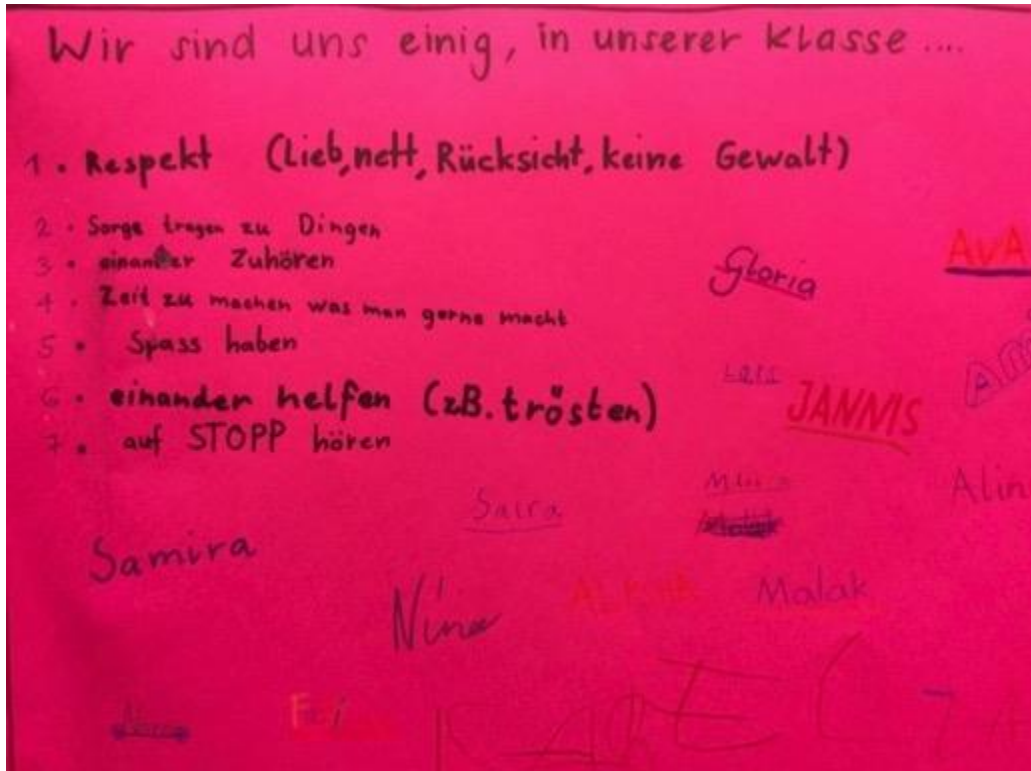 Wir sind uns einig, in unserer Klasse ....
1. Respekt (Lieb, nett, Rücksicht, keine Gewalt)
2. Sorge tragen zu Dingen
3. einander Zuhören
4. Zeit zu machen was man gerne macht
5. Spass haben
6. einander helfen (zB. trösten)
7. auf STOPP hören
Gloria
AVA
JANNIS
Saira
Samira
Nina
Malak